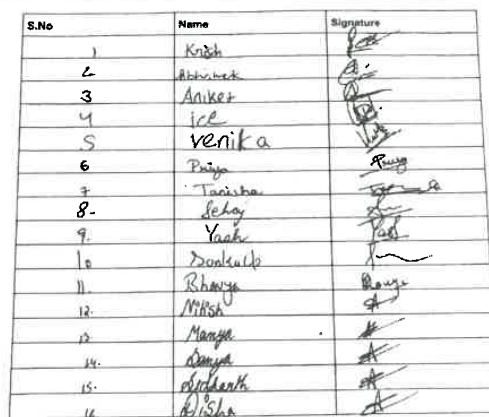 S.No Name Signature
1 Krish
2 Abhishek
3 Aniket
4 ice
5 venika
6 Priya Priya
7 Tanisha
8. Sehaj
9. Yash Yash
10 Sankalp
11. Bhavya Bhavya
12. Nitish
13 Manya
14. Sanya
15. Siddhanth
16 Disha